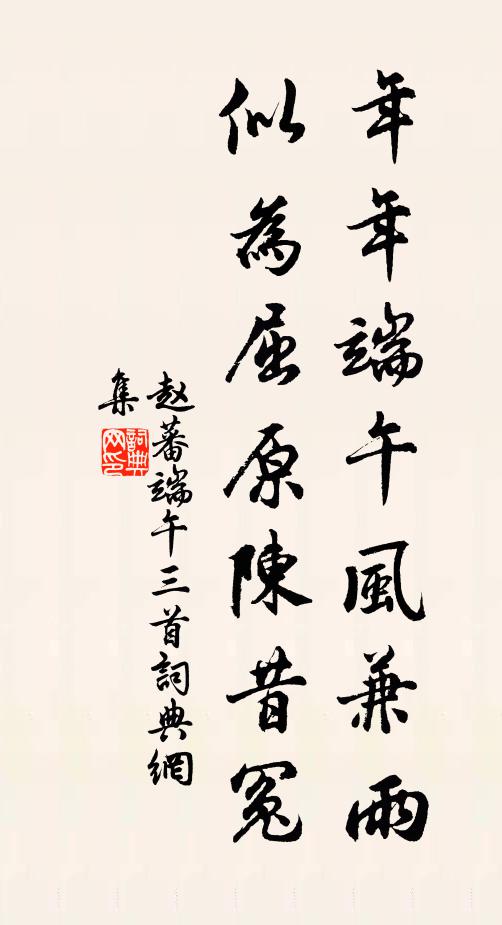 年年端午風兼雨
似為屈原陳昔冤
赵蕃端午三首詞典網
集
詞典
网印